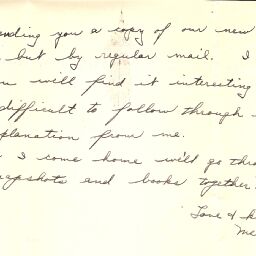 ending you a copy of our new
, but by regular mail. I
ou will find it interesting
difficult to follow through
planation from me.
I come home we'd go thro
apshots and books together
Love &
Me